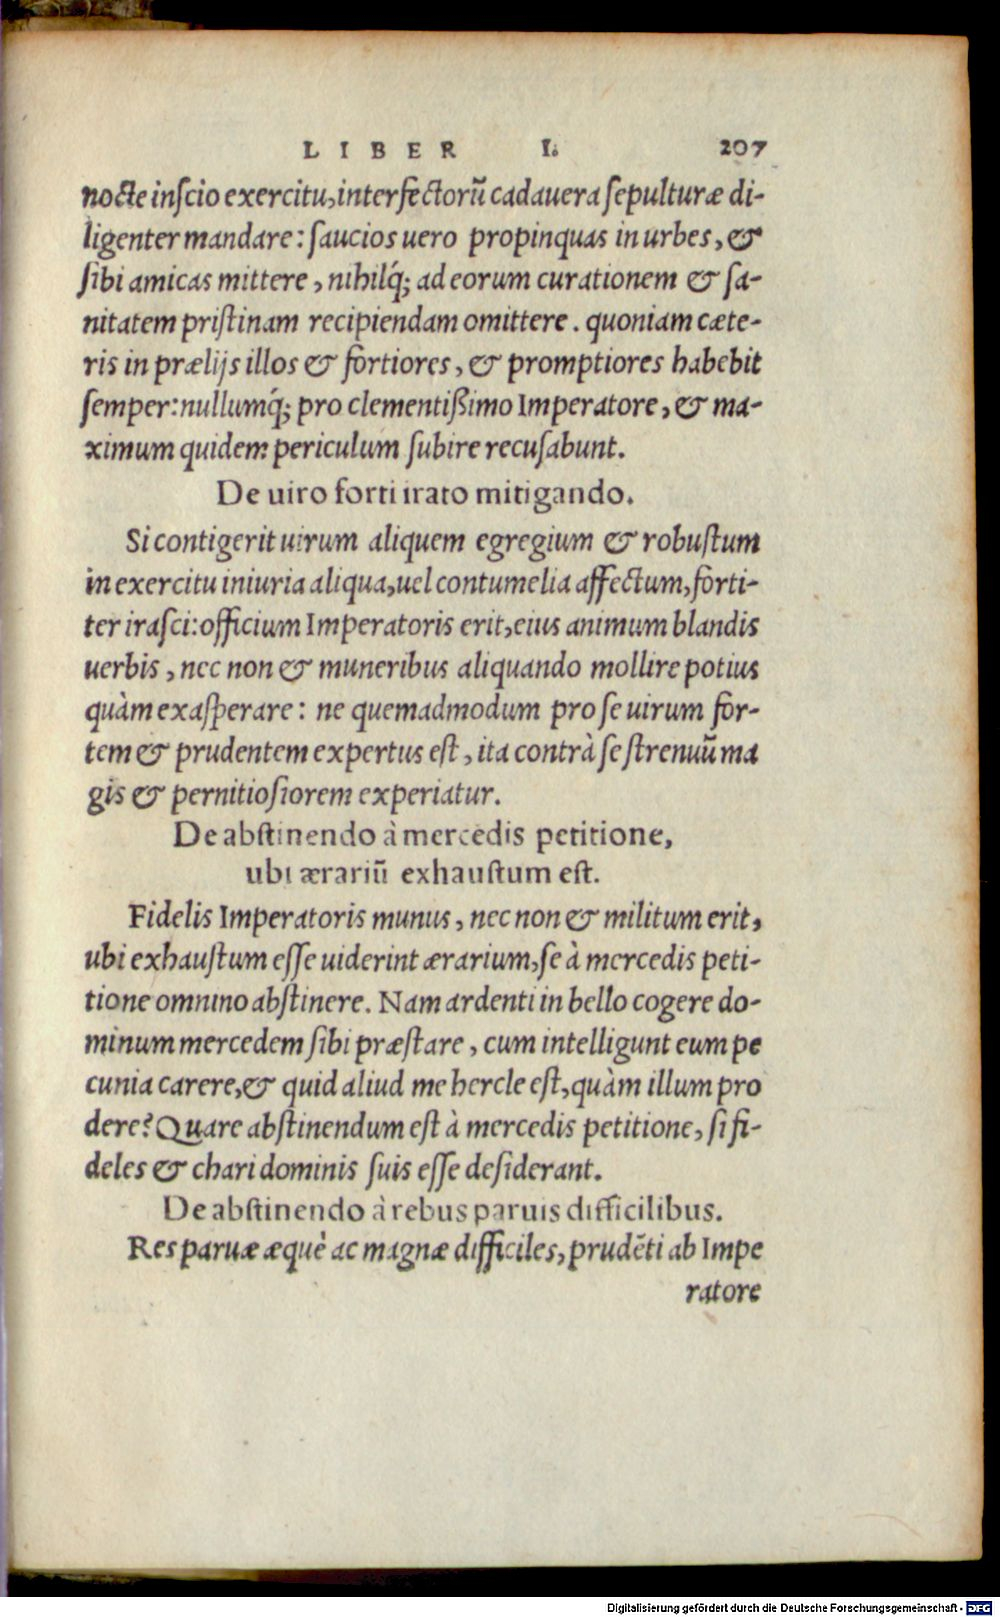 LIBER I. 207
nocte inscio exercitu, interfectorũ cadauera sepulturæ di-
ligenter mandare: saucios uero propinquas in urbes, &
sibi amicas mittere, nihilq́; ad eorum curationem & sa-
nitatem pristinam recipiendam omittere. quoniam cæte-
ris in prælijs illos & fortiores, & promptiores habebit
semper: nullumq́; pro clementißimo Imperatore, & ma-
ximum quidem periculum subire recusabunt.
De uiro forti irato mitigando.
Si contigerit uirum aliquem egregium & robustum
in exercitu iniuria aliqua, uel contumelia affectum, forti-
ter irasci: officium Imperatoris erit, eius animum blandis
uerbis, nec non & muneribus aliquando mollire potius
quàm exasperare: ne quemadmodum pro se uirum for-
tem & prudentem expertus est, ita contrà se strenuũ ma
gis & pernitiosiorem experiatur.
De abstinendo à mercedis petitione,
ubi ærariũ exhaustum est.
Fidelis Imperatoris munus, nec non & militum erit,
ubi exhaustum esse uiderint ærarium, se à mercedis peti-
tione omnino abstinere. Nam ardenti in bello cogere do-
minum mercedem sibi præstare, cum intelligunt eum pe
cunia carere, & quid aliud me hercle est, quàm illum pro
dere? Quare abstinendum est à mercedis petitione, si fi-
deles & chari dominis suis esse desiderant.
De abstinendo à rebus paruis difficilibus.
Res paruæ æquè ac magnæ difficiles, prudẽti ab Impe
ratore
Digitalisierung gefördert durch die Deutsche Forschungsgemeinschaft - DFG